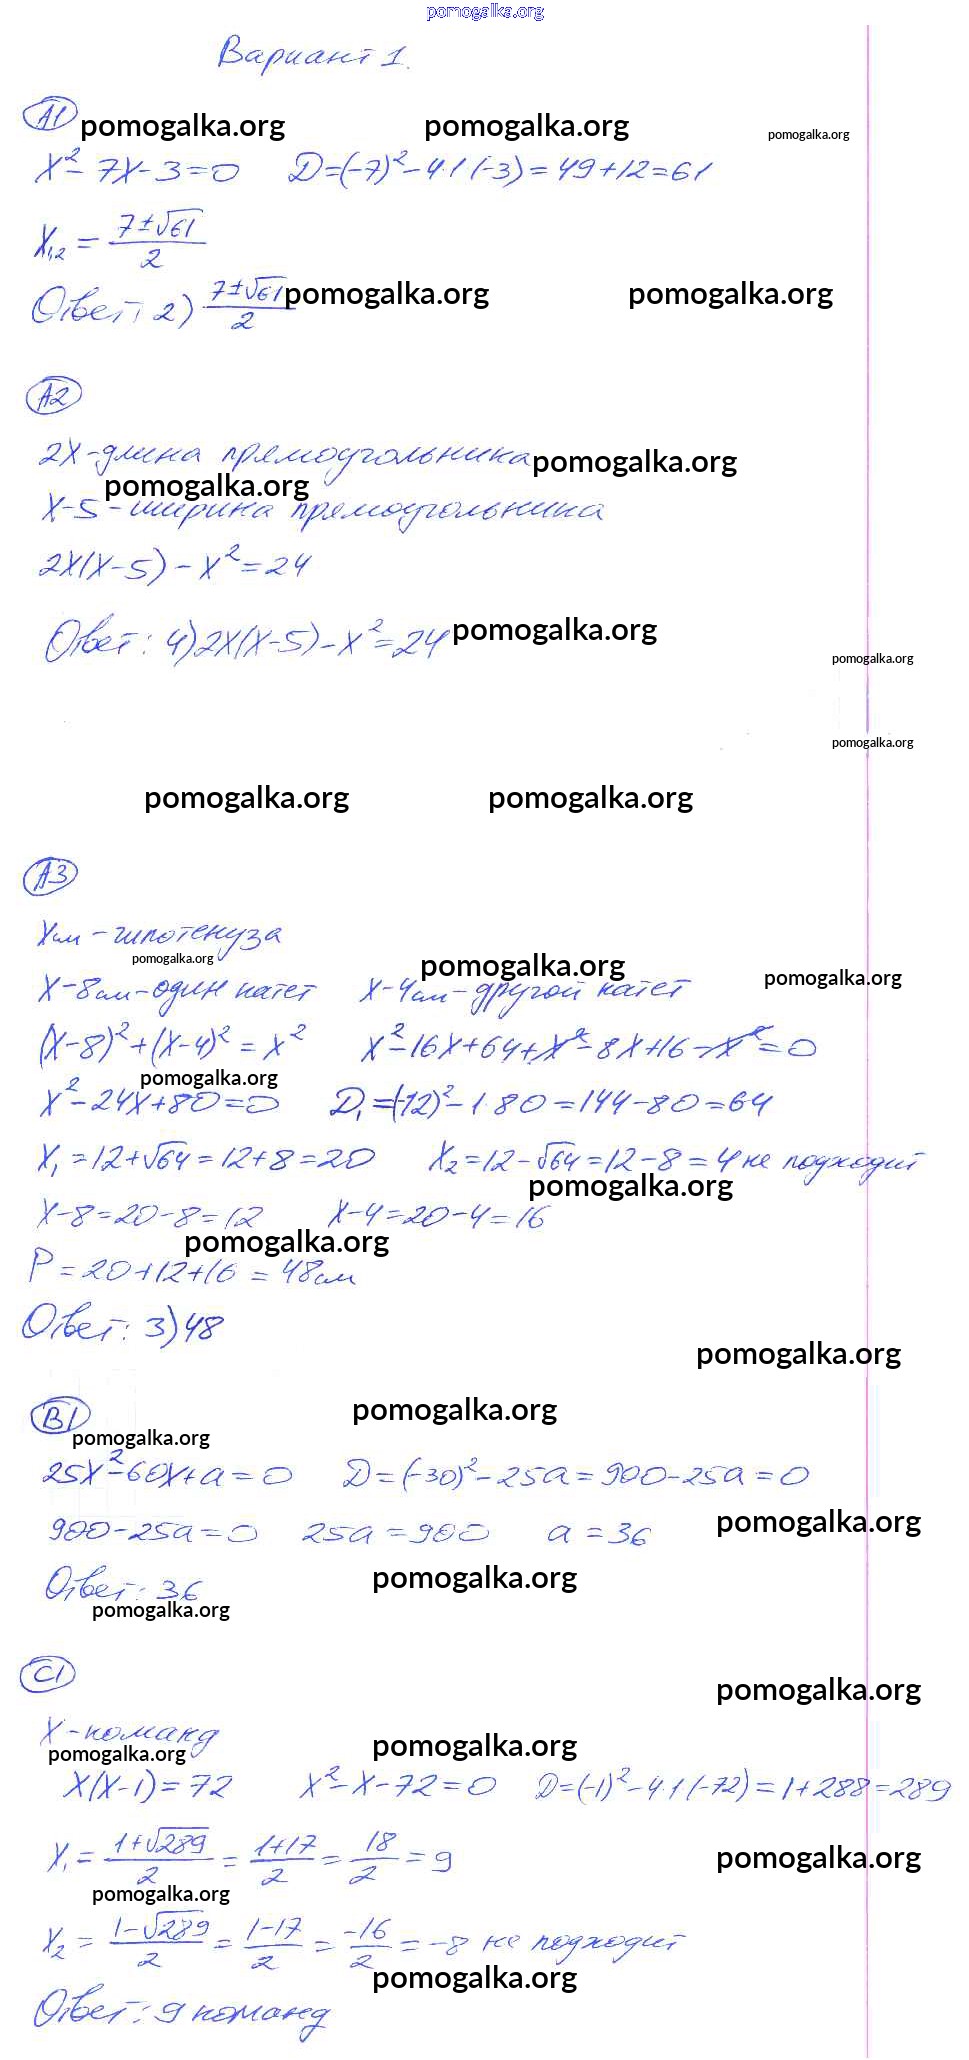 pomogalka.org
Вариант 1.
А1 pomogalka.org pomogalka.org pomogalka.org
x² - 7x - 3 = 0 D = (-7)² - 4·1(-3) = 49 + 12 = 61
x₁,₂ = (7 ± √61)/2
Ответ: 2) (7 ± √61)/2 pomogalka.org pomogalka.org
А2
2x - длина прямоугольника pomogalka.org
pomogalka.org
x - 5 - ширина прямоугольника
2x(x - 5) - x² = 24
Ответ: 4) 2x(x - 5) - x² = 24 pomogalka.org
pomogalka.org
pomogalka.org
pomogalka.org pomogalka.org
А3
x см - гипотенуза
pomogalka.org pomogalka.org pomogalka.org
x - 8 см - один катет x - 4 см - другой катет
(x - 8)² + (x - 4)² = x² x² - 16x + 64 + x² - 8x + 16 - x² = 0
pomogalka.org
x² - 24x + 80 = 0 D₁ = (-12)² - 1·80 = 144 - 80 = 64
x₁ = 12 + √64 = 12 + 8 = 20 x₂ = 12 - √64 = 12 - 8 = 4 не подходит
pomogalka.org
x - 8 = 20 - 8 = 12 x - 4 = 20 - 4 = 16
pomogalka.org
P = 20 + 12 + 16 = 48 см
Ответ: 3) 48
pomogalka.org
В1 pomogalka.org
pomogalka.org
25x² - 60x + a = 0 D = (-30)² - 25a = 900 - 25a = 0
900 - 25a = 0 25a = 900 a = 36 pomogalka.org
Ответ: 36 pomogalka.org
pomogalka.org
С1
pomogalka.org
x - команд
pomogalka.org pomogalka.org
x(x - 1) = 72 x² - x - 72 = 0 D = (-1)² - 4·1(-72) = 1 + 288 = 289
x₁ = (1 + √289)/2 = (1 + 17)/2 = 18/2 = 9 pomogalka.org
pomogalka.org
x₂ = (1 - √289)/2 = (1 - 17)/2 = -16/2 = -8 не подходит
pomogalka.org
Ответ: 9 команд